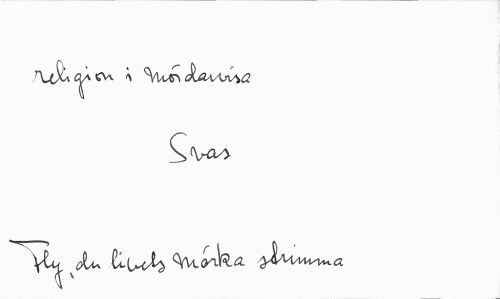 religion i mördarvisa
Svas
Fly, du livets mörka strimma